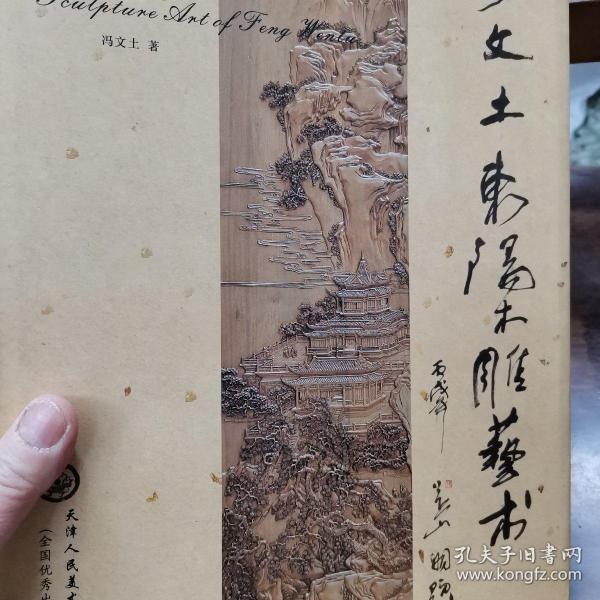 Sculpture Art of Feng Wentu
冯文土 著
文土東陽木雕藝术
丙戌年
吴山明题
天津人民美术
(全国优秀出
孔夫子旧书网
www.kongfz.com